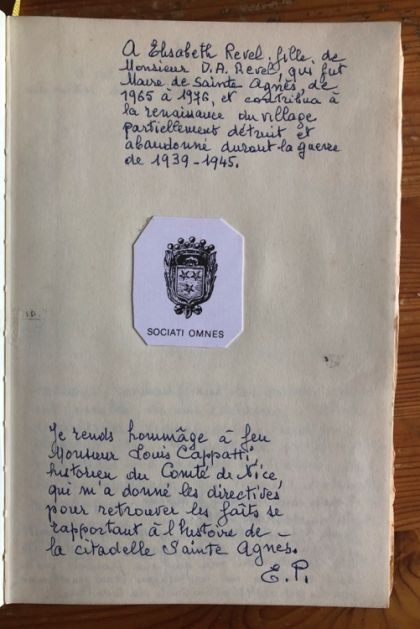 A Elisabeth Revel, fille de
Monsieur D.A. Revel, qui fut
Maire de Sainte Agnès, de
1965 à 1976, et contribua à
la renaissance du village
partiellement détruit et
abandonné durant la guerre
de 1939-1945.
SOCIATI OMNES
Je rends hommâge à feu
Monsieur Louis Cappatti,
historien du Comté de Nice,
qui m'a donné les directives
pour retrouver les faits se
rapportant à l'histoire de -
la citadelle Sainte Agnes.
E.P.